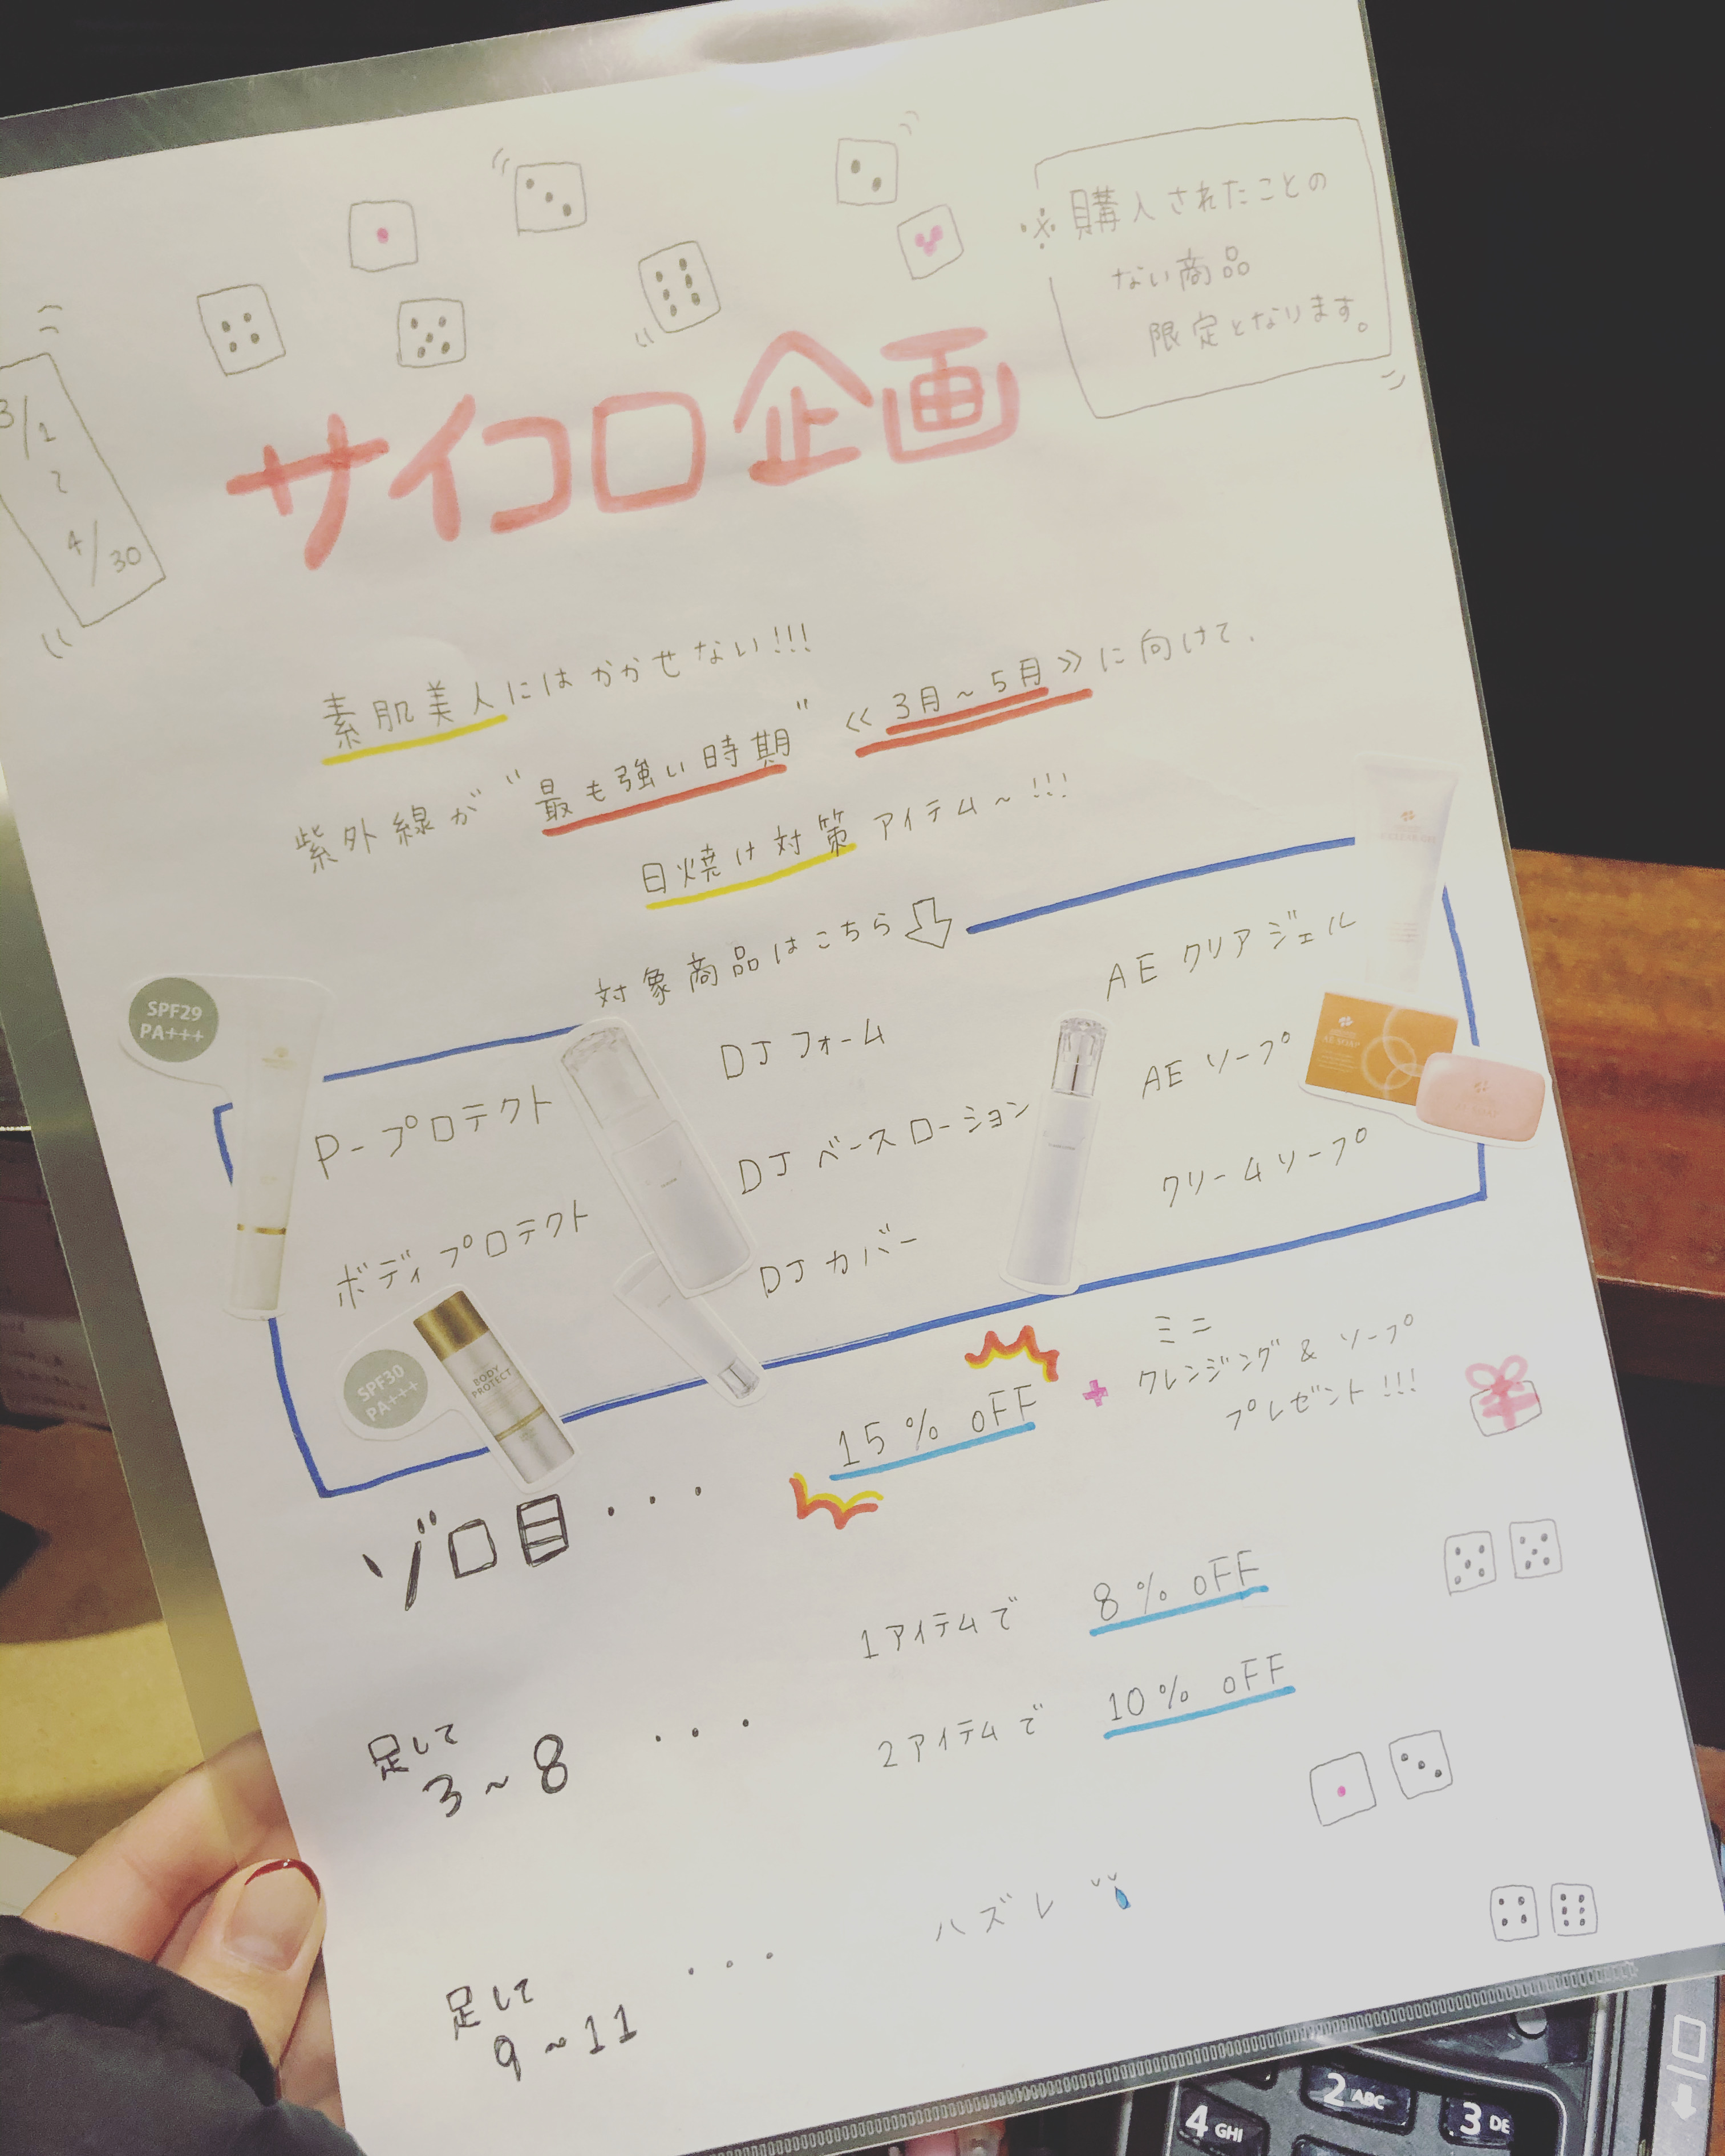 ※購入されたことの
ない商品
限定となります。
3/1
〜
4/30
サイコロ企画
素肌美人にはかかせない!!!
紫外線が“最も強い時期”≪3月~5月≫に向けて、
日焼け対策アイテム~!!!
対象商品はこちら
SPF29
PA+++
P-プロテクト
ボディプロテクト
SPF30
PA+++
BODY
PROTECT
DJフォーム
DJベースローション
DJカバー
AEクリアジェル
AEソープ
クリームソープ
ゾロ目・・・
15% OFF
+ミニ
クレンジング&ソープ
プレゼント!!!
足して
3~8 ・・・
1アイテムで 8% OFF
2アイテムで 10% OFF
足して
9~11 ・・・
ハズレ
2 ABC
3 DE
4 GHI